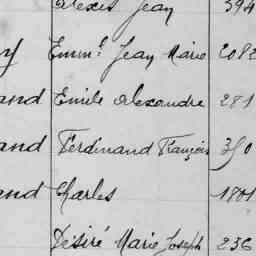 Alexis Jean 394
y Emm.l Jean Marie 2082
and Emile Alexandre 281
and Ferdinand François 350
and Charles 1801
Désiré Marie Joseph 236